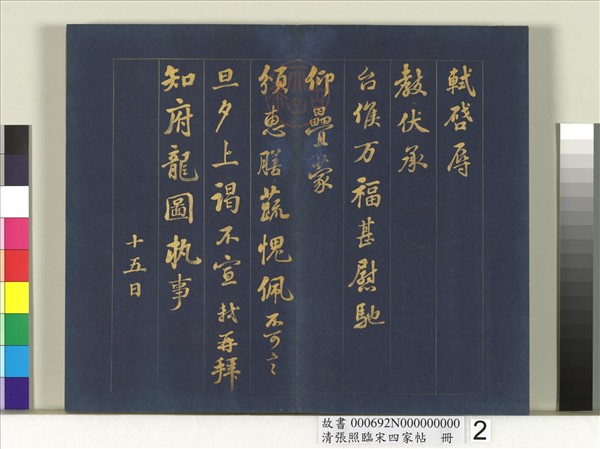 軾啓辱
教伏承
台候万福甚慰馳
仰疊蒙
須惠膳蔬愧佩不可言
旦夕上謁不宣 軾再拜
知府龍圖執事
十五日
故書 000692N000000000
清張照臨宋四家帖 冊
2